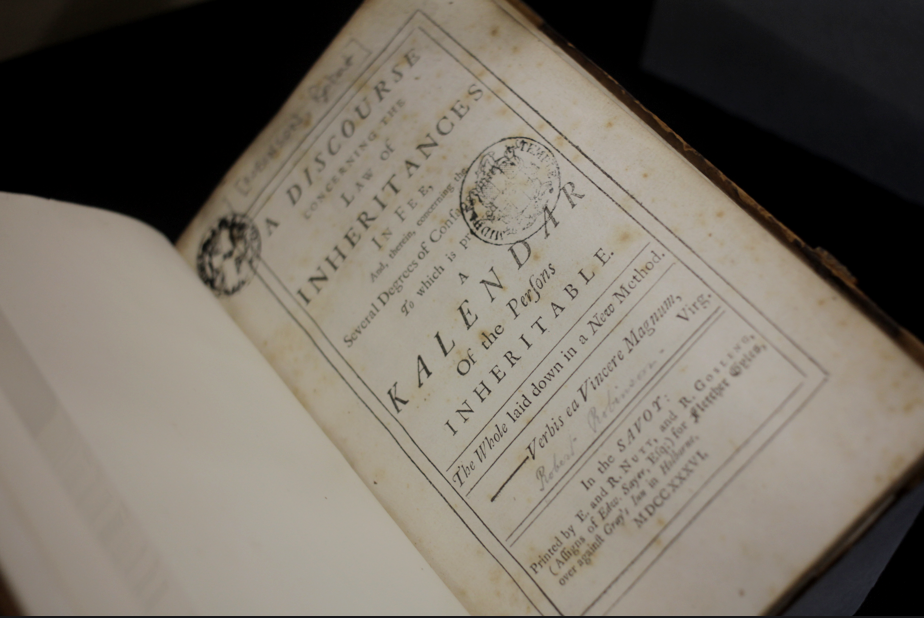 A DISCOURSE
CONCERNING THE
LAW of
INHERITANCES
IN FEE,
And, therein, concerning the
Several Degrees of
To which is
A
KALENDAR
Of the Perſons
INHERITABLE.
The Whole laid down in a New Method.
Verbis ea Vincere Magnum,
Virg.
Robert Robinson
In the SAVOY:
Printed by E. and R. NUTT, and R. GOSLING,
(Aſſigns of Edw. Sayer, Eſq;) for Fletcher Gyles,
over againſt Gray's Inn in Holborn.
MDCCXXXVI.